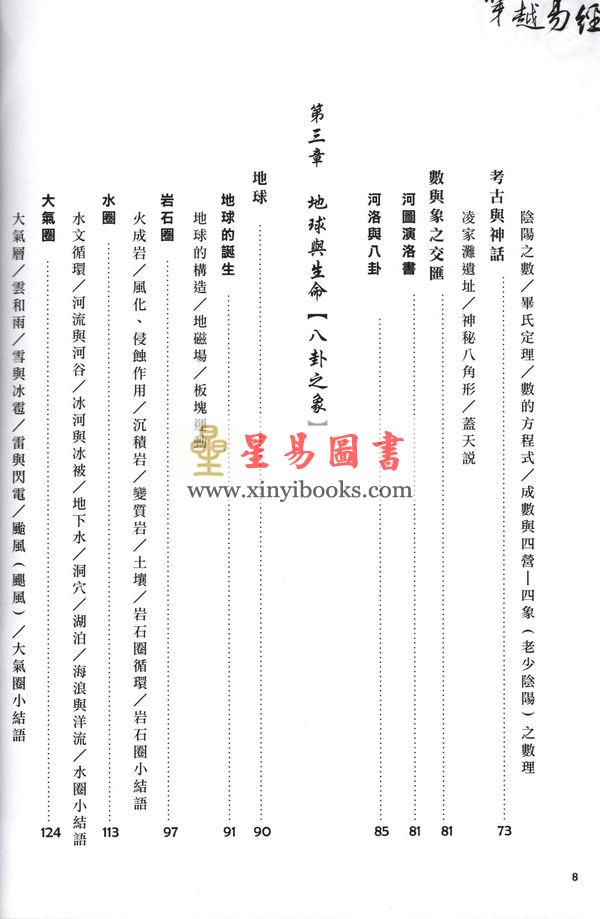 穿越易經
陰陽之數／畢氏定理／數的方程式／成數與四營—四象（老少陰陽）之數理
考古與神話 73
凌家灘遺址／神秘八角形／蓋天説
數與象之交匯 81
河圖演洛書 81
河洛與八卦 85
第三章 地球與生命【八卦之象】
地球 90
地球的誕生 91
地球的構造／地磁場／板塊運動
岩石圈 97
火成岩／風化、侵蝕作用／沉積岩／變質岩／土壤／岩石圈循環／岩石圈小結語
水圈 113
水文循環／河流與河谷／冰河與冰被／地下水／洞穴／湖泊／海浪與洋流／水圈小結語
大氣圈 124
大氣層／雲和雨／雪與冰雹／雷與閃電／颱風（颶風）／大氣圈小結語
星易圖書
www.xinyibooks.com
8